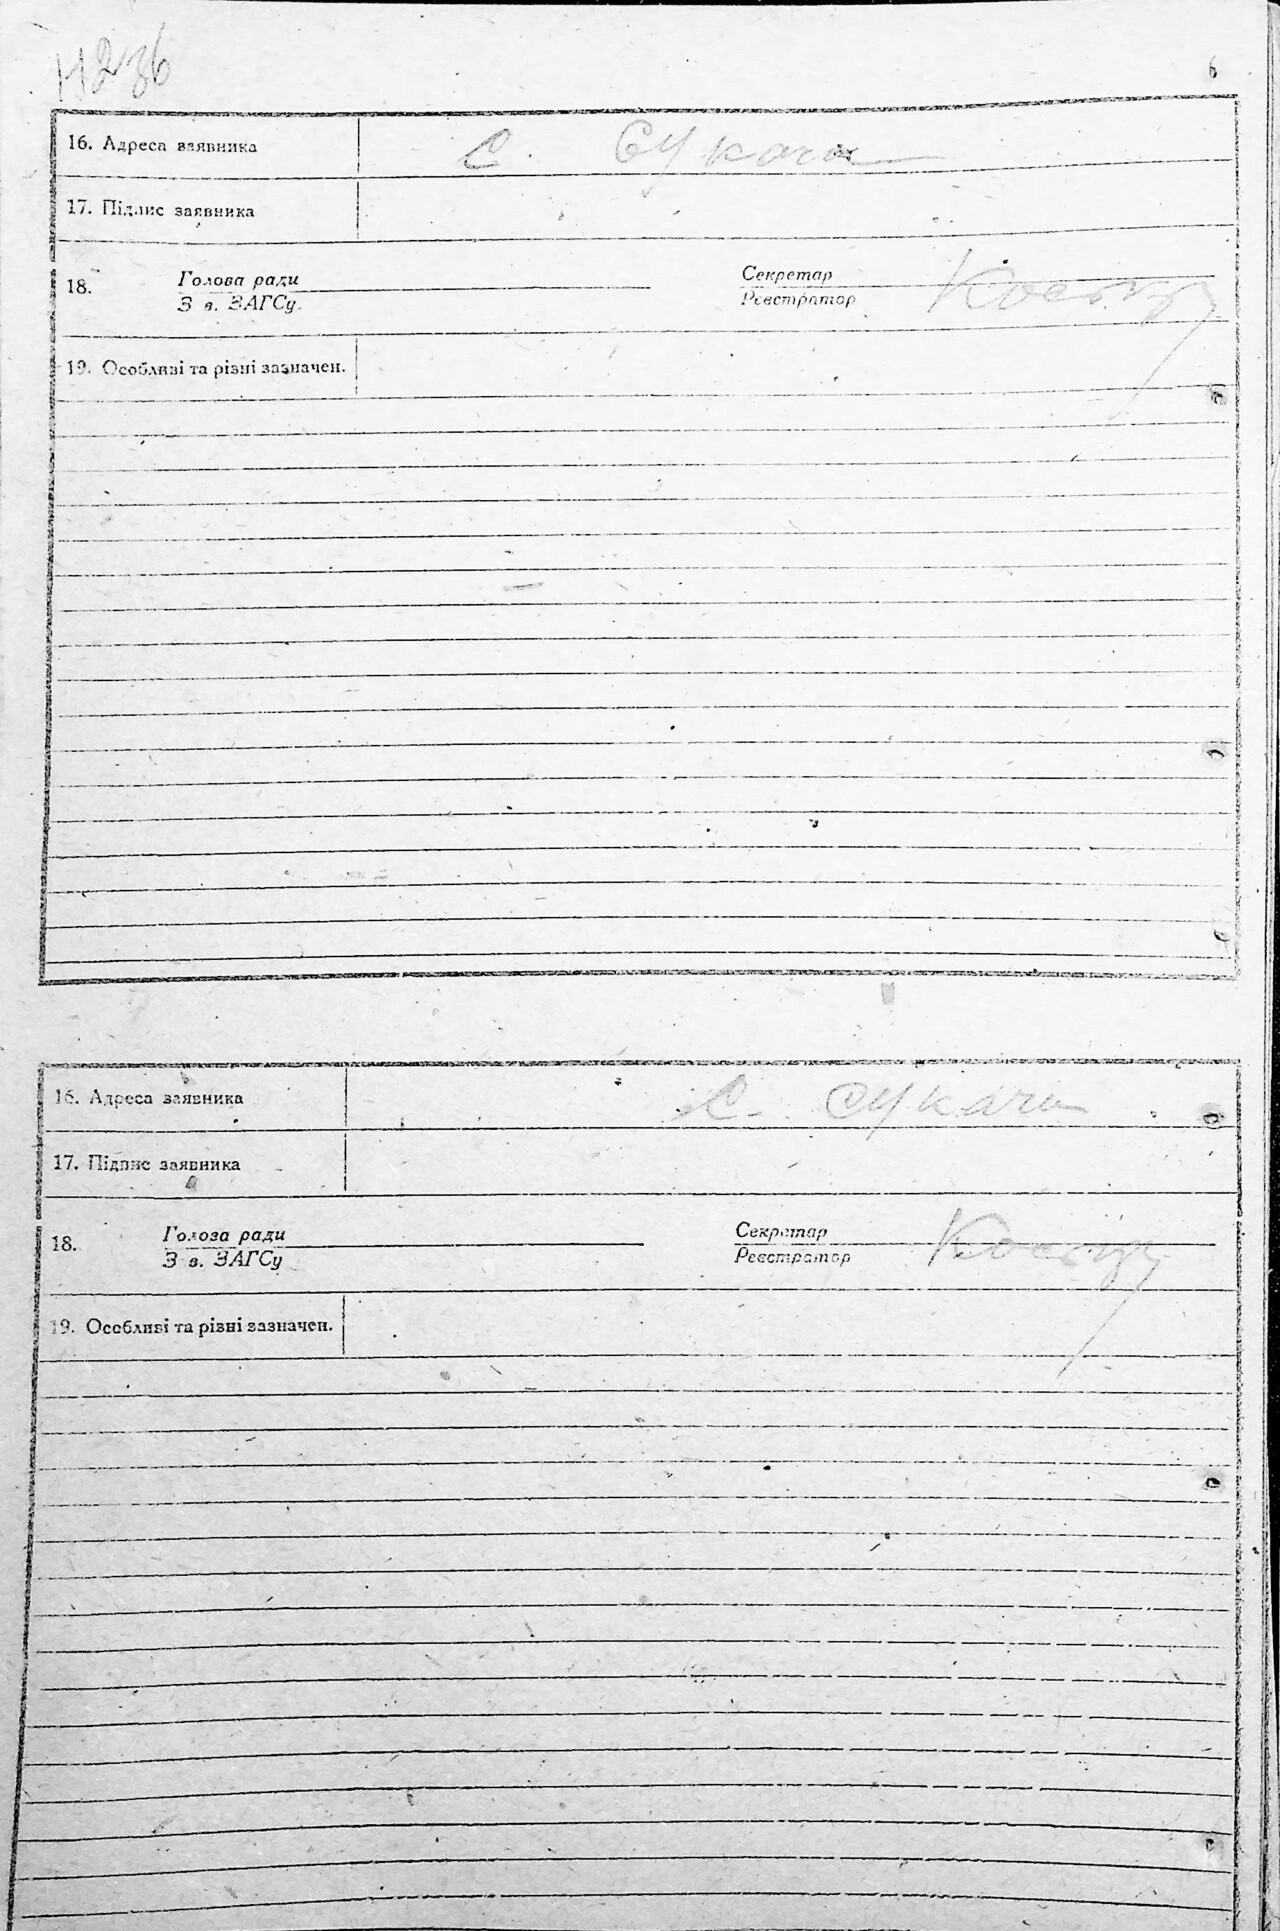 Н236
6
16. Адреса заявника с. Сукачі
17. Підпис заявника
18. Голова ради Секретар
З в. ЗАГСу. Реєстратор
19. Особливі та різні зазначен.
16. Адреса заявника с. Сукачі
17. Підпис заявника
18. Голова ради Секретар
З в. ЗАГСу Реєстратор
19. Особливі та різні зазначен.